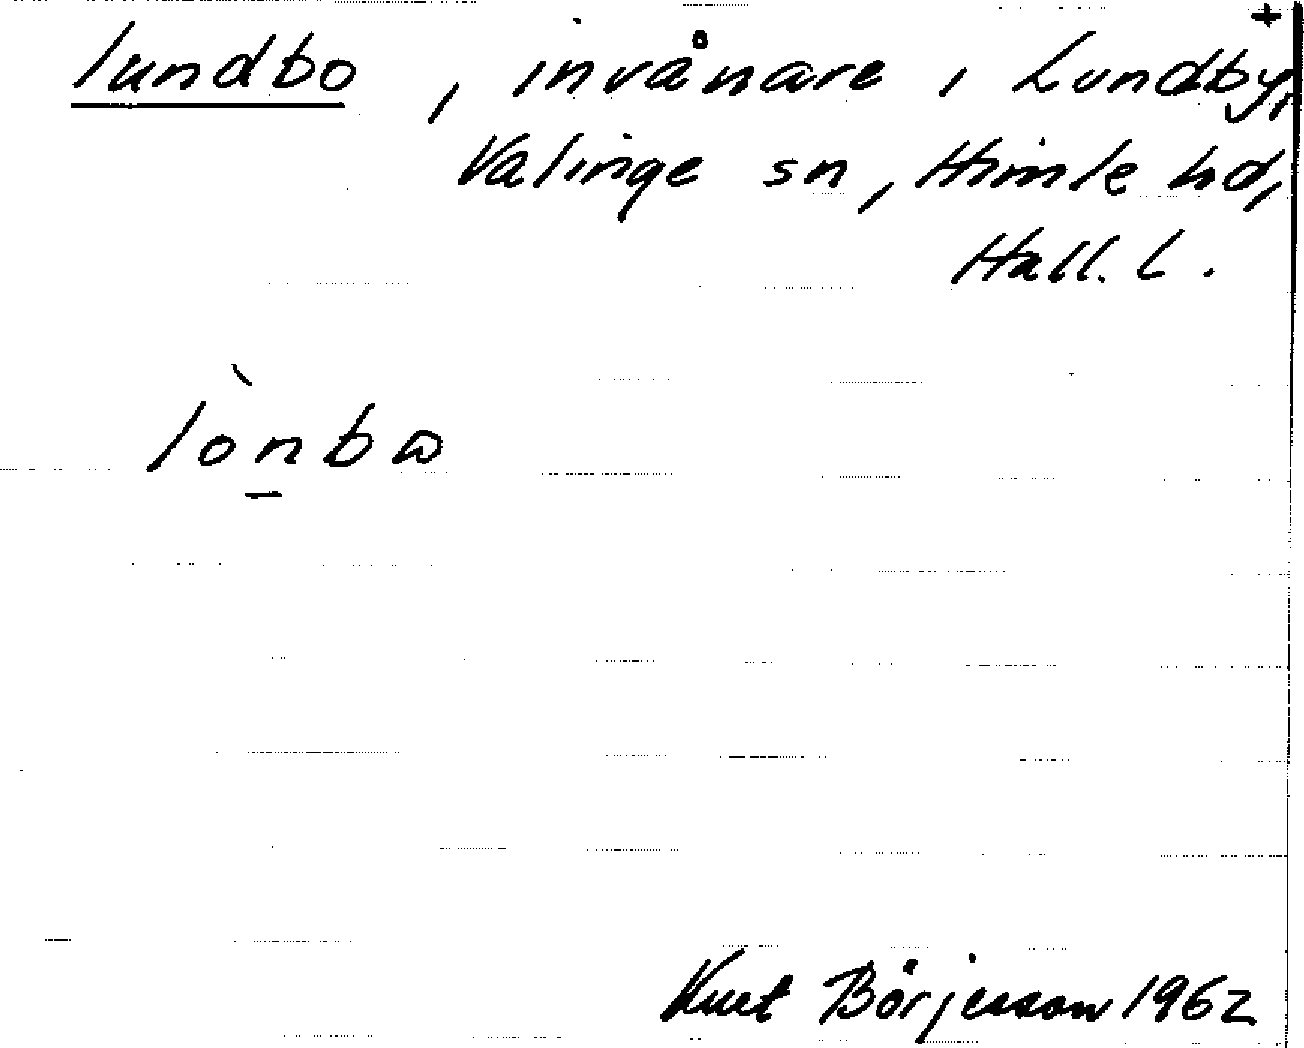 +
lundbo , invånare i Lundby,
Valinge sn, Himle hd,
Hall. L.
lò̱nbɷ
Kurt Börjesson 1962